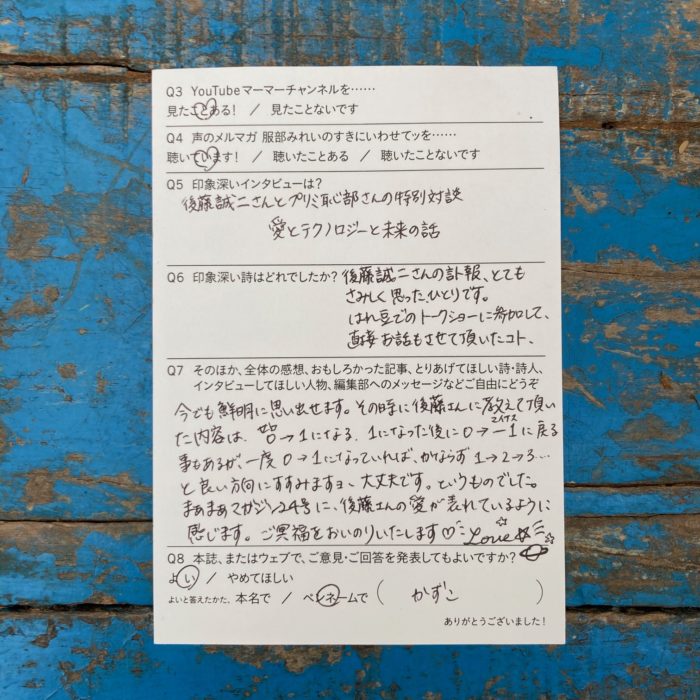 Q3 YouTubeマーマーチャンネルを……
見たことある! / 見たことないです
Q4 声のメルマガ 服部みれいのすきにいわせてッを……
聴いています! / 聴いたことある / 聴いたことないです
Q5 印象深いインタビューは?
後藤誠二さんとプリミ恥部さんの特別対談
愛とテクノロジーと未来の話
Q6 印象深い詩はどれでしたか? 後藤誠二さんの訃報、とても
さみしく思った、ひとりです。
はれ豆でのトークショーに参加して、
直接お話もさせて頂いたコト、
Q7 そのほか、全体の感想、おもしろかった記事、とりあげてほしい詩・詩人、
インタビューしてほしい人物、編集部へのメッセージなどご自由にどうぞ
今でも鮮明に思い出せます。その時に後藤さんに教えて頂い
ゼロ マイナス
た内容は、0→1になる、1になった後に0→−1に戻る
事もあるが、一度0→1になっていれば、かならず1→2→3…
と良い方向にすすみますョ、大丈夫です。というものでした。
まぁまぁマガジン24号に、後藤さんの愛が表れているように
感じます。ご冥福をおいのりいたします♡ Love☆
Q8 本誌、またはウェブで、ご意見・ご回答を発表してもよいですか?
よい / やめてほしい
よいと答えたかた、本名で / ペンネームで ( かずこ )
ありがとうございました!